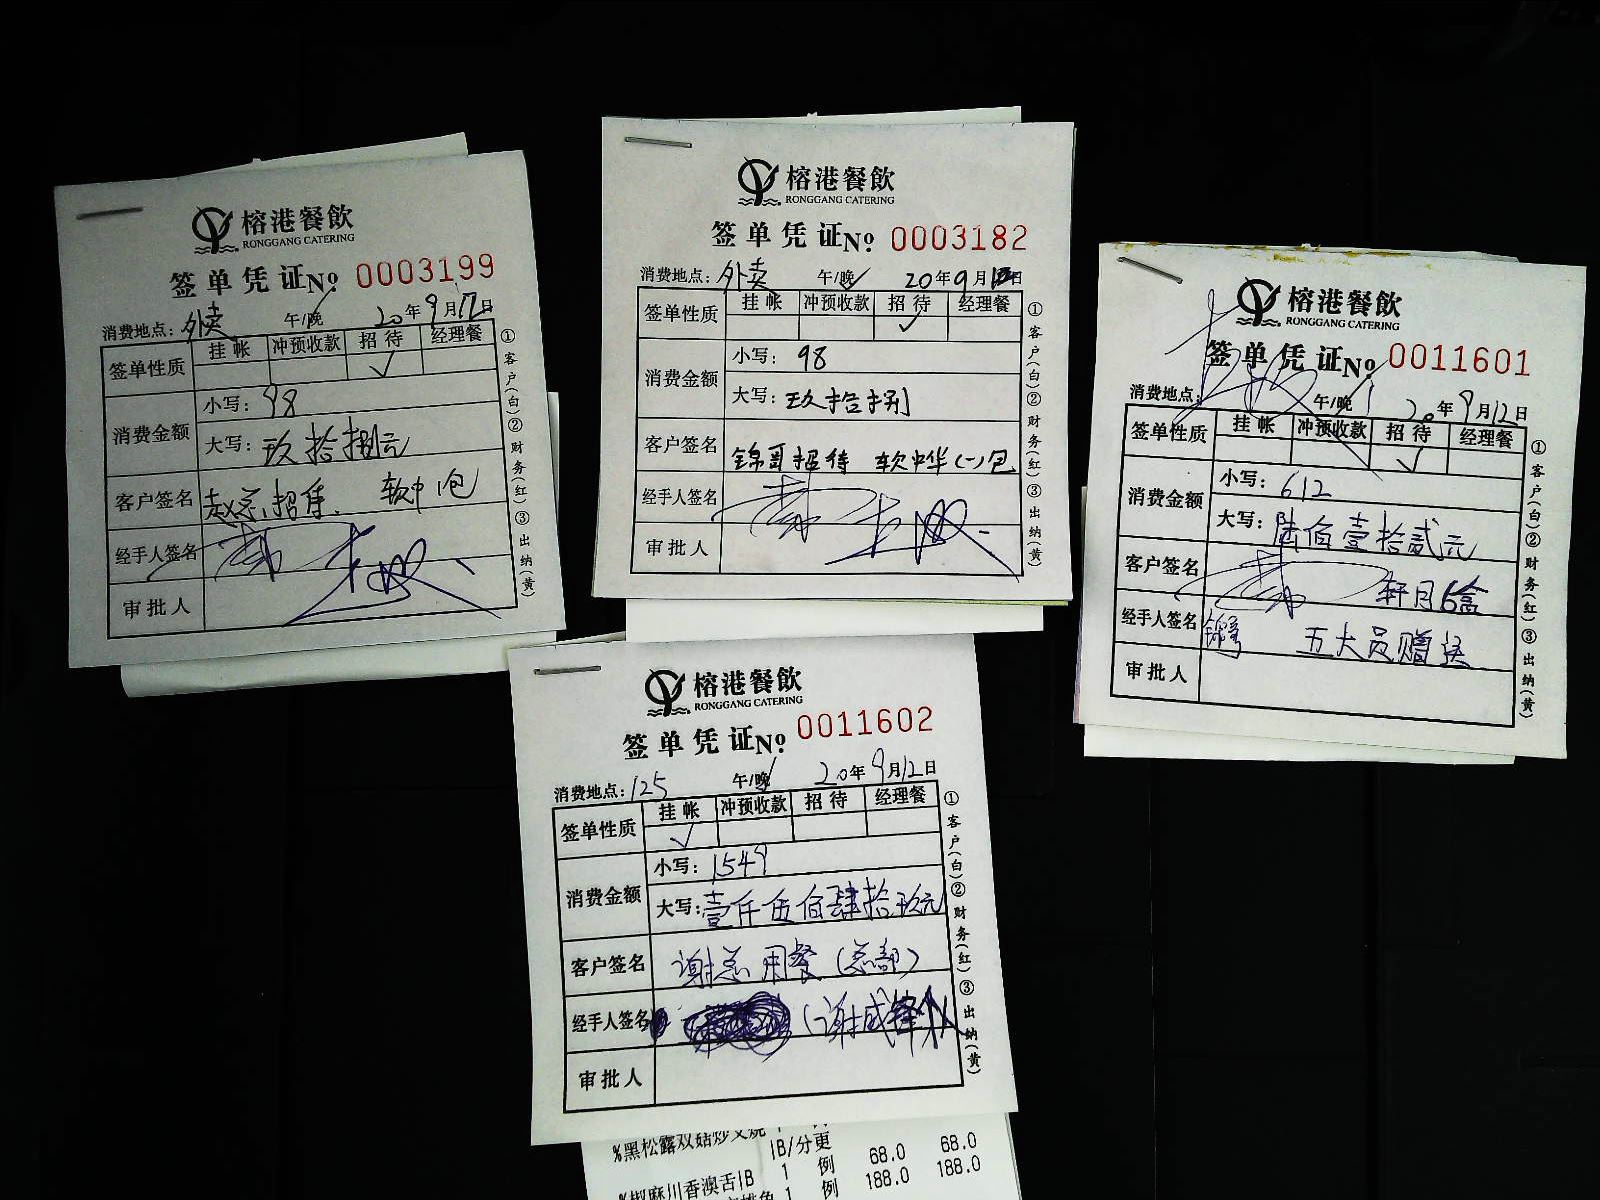 榕港餐飲
RONGGANG CATERING
签单凭证No 0003199
消费地点：外卖 午/晚 20年9月12日
签单性质 挂帐 冲预收款 招待 经理餐
√
消费金额 小写：98
大写：玖拾捌元
客户签名 赵总招待. 软中1包
经手人签名
审批人
①客户(白)②财务(红)③出纳(黄)
榕港餐飲
RONGGANG CATERING
签单凭证No 0003182
消费地点：外卖 午/晚 20年9月12日
签单性质 挂帐 冲预收款 招待 经理餐
√
消费金额 小写：98
大写：玖拾捌
客户签名 锦哥招待 软中华(一)包
经手人签名
审批人
①客户(白)②财务(红)③出纳(黄)
榕港餐飲
RONGGANG CATERING
签单凭证No 0011601
消费地点： 午/晚 20年9月12日
签单性质 挂帐 冲预收款 招待 经理餐
√
消费金额 小写：612
大写：陆佰壹拾贰元
客户签名 轩月6盒
经手人签名 五大员赠送
审批人
①客户(白)②财务(红)③出纳(黄)
榕港餐飲
RONGGANG CATERING
签单凭证No 0011602
消费地点：125 午/晚 20年9月12日
签单性质 挂帐 冲预收款 招待 经理餐
√
消费金额 小写：1549
大写：壹仟伍佰肆拾玖元
客户签名 谢总用餐(总部)
经手人签名 (谢成锋
审批人
①客户(白)②财务(红)③出纳(黄)
%黑松露双菇炒叉烧
IB/分更
1 例 68.0 68.0
%椒麻川香澳舌IB
1 例 188.0 188.0